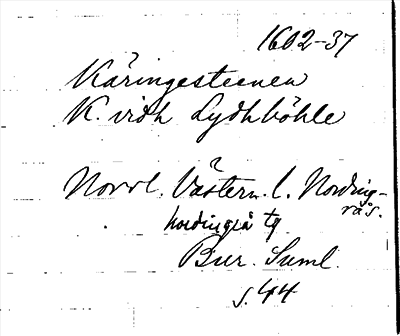 1602-37
Käringesteenen
K. vidh Lydhböhle
Norrl. Västern. l. Nording-
rås.
Nordingrå tg
Bur. Saml.
s. 44